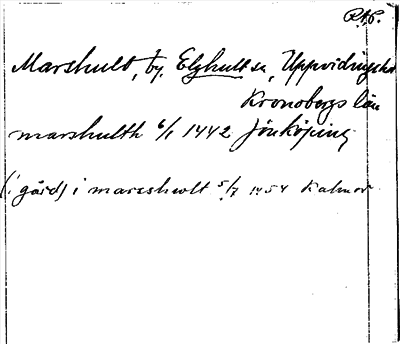 RAP.
Marshult, by, Elghult sn, Uppvidinge hd
Kronobergs län
marshulth 6/1 1442 Jönköping
(i gård) i marsshwlt 5/7 1454 Kalmar